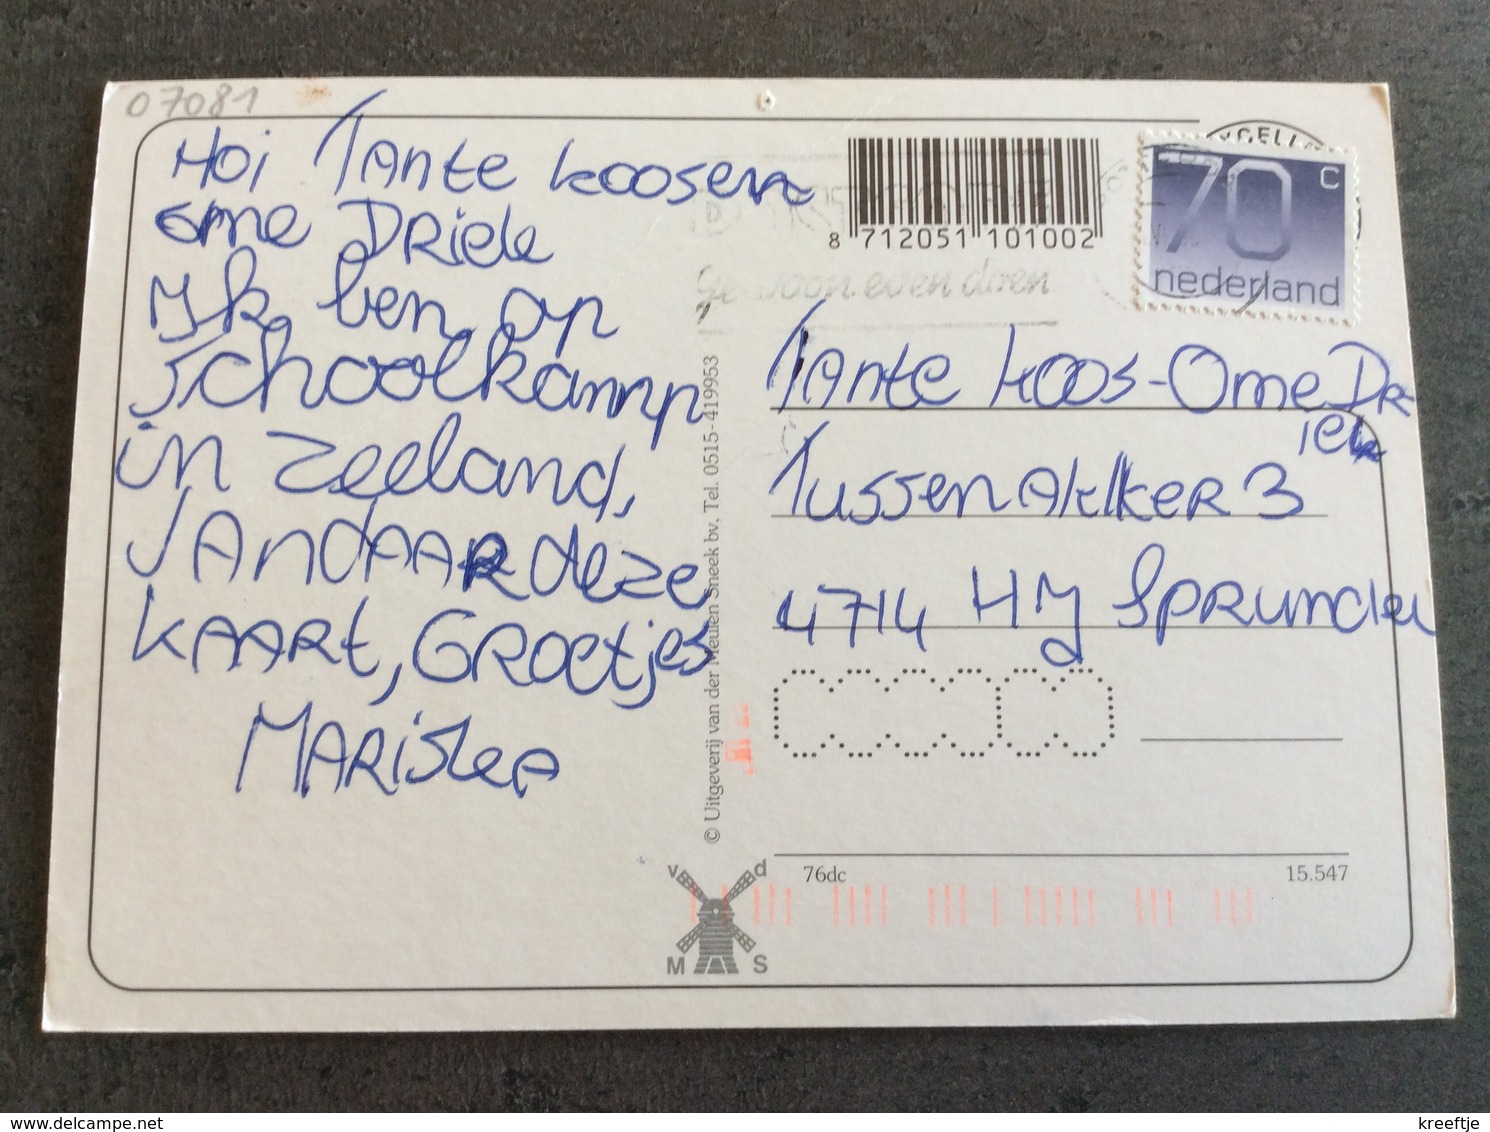 07081
Hoi Tante Koosen
ome Driek
Ik ben op
schoolkamp
in zeeland,
Vandaar deze
kaart, Groetjes
Mariska
8 712051 101002
Gewoon even doen
70 c
nederland
Tante Koos-Ome Dr
iek
Tussenakker 3
4714 HJ Sprundel
© Uitgeverij van der Meulen Sneek bv. Tel. 0515-419953
v d
M S
76dc
15.547
kreeftje